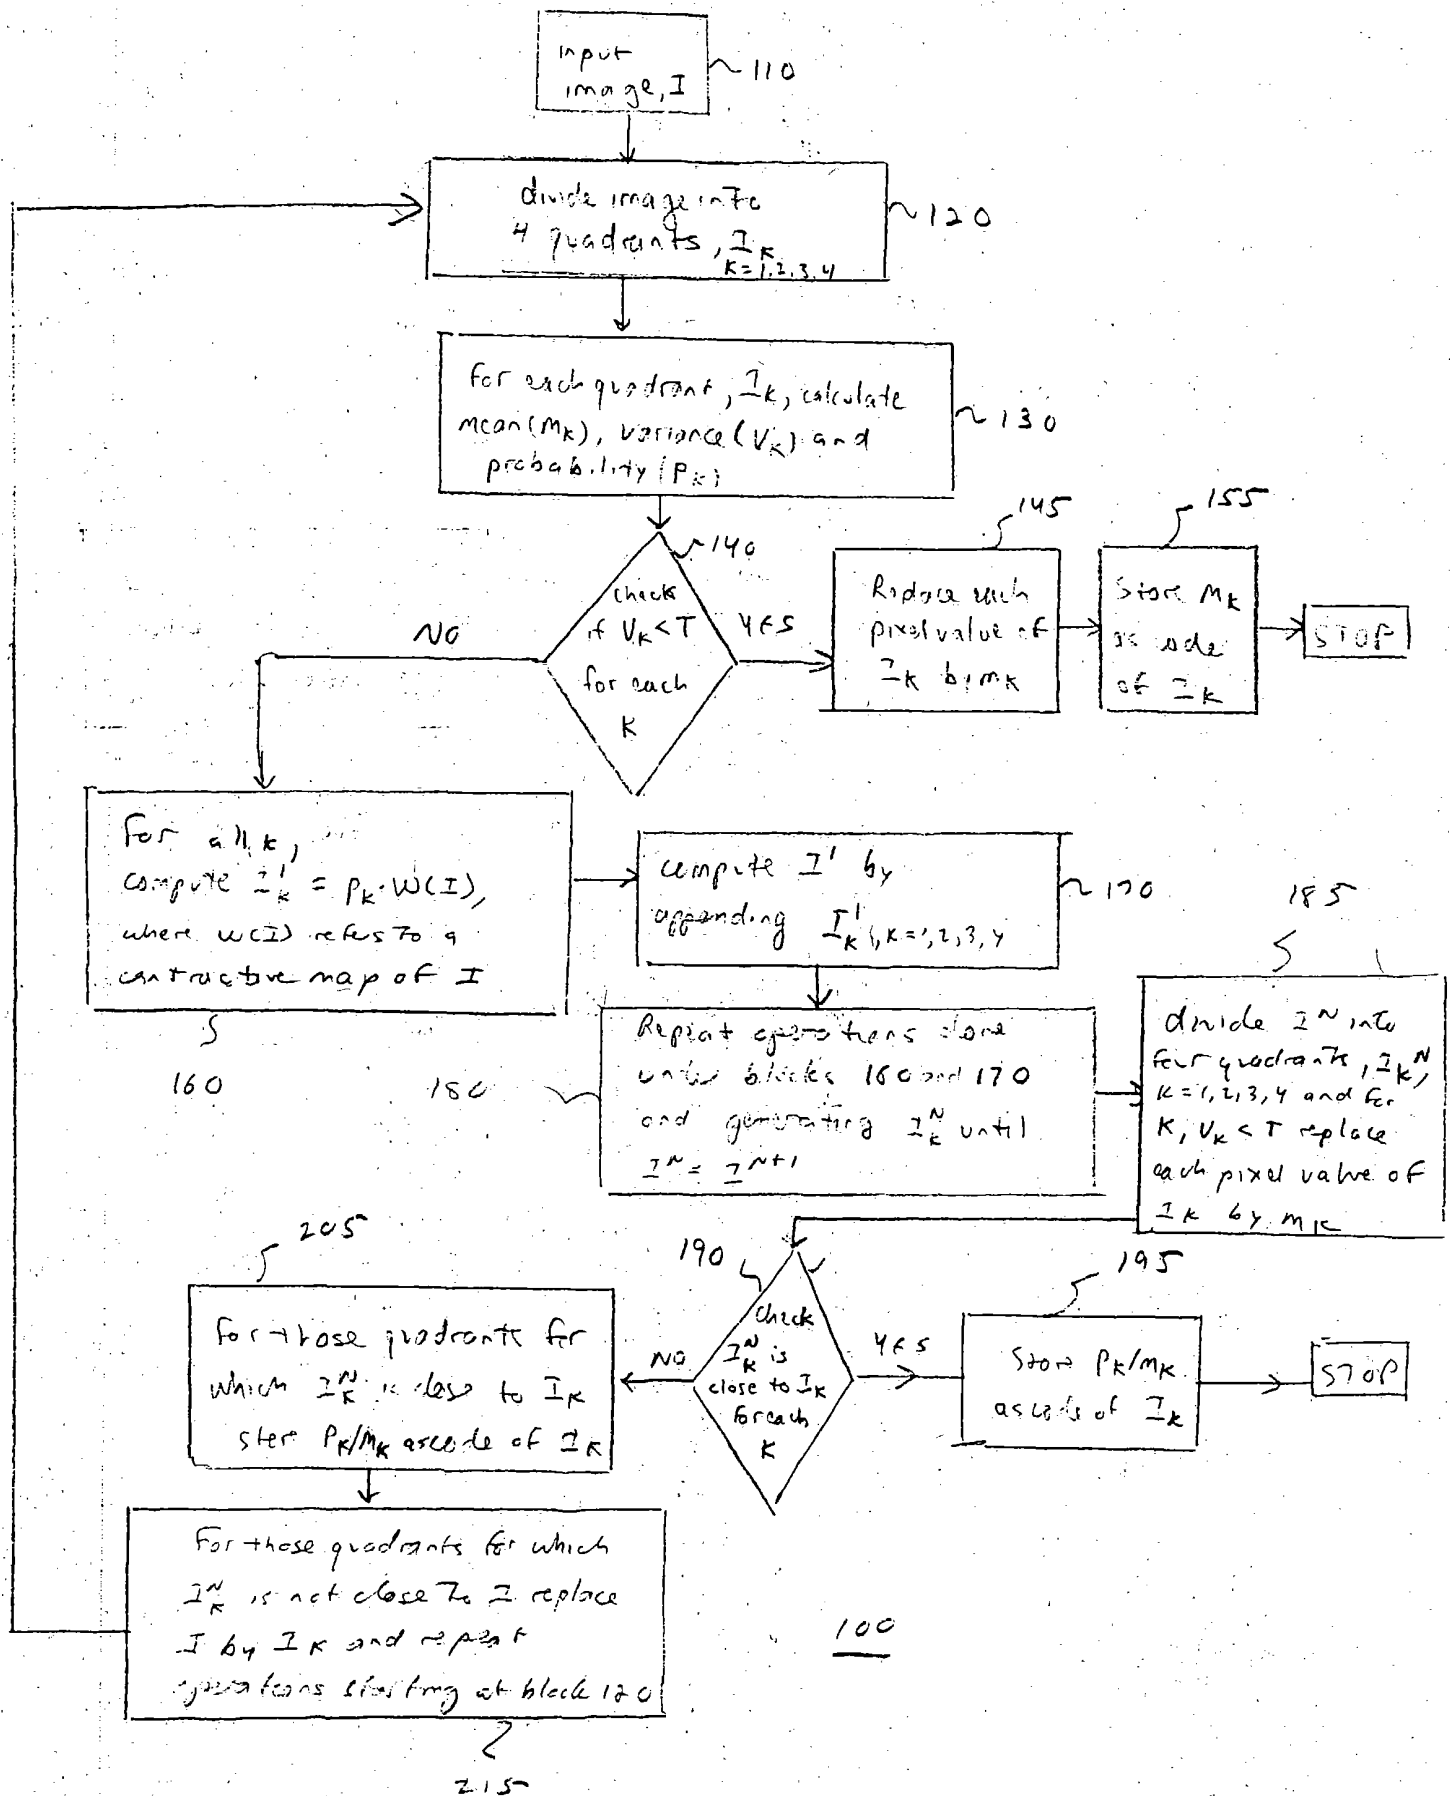 input
image, I
110
divide image into
4 quadrants, I_K
K=1,2,3,4
120
For each quadrant, I_K, calculate
mean(M_K), variance(V_K) and
probability(P_K)
130
140
check
if V_K < T
for each
K
NO
YES
145
Replace each
pixel value of
I_K by m_K
155
Store M_K
as code
of I_K
STOP
For all K,
compute I'_K = P_K·W(I),
where W(I) refers to a
contractive map of I
160
compute I' by
appending I'_K, K=1,2,3,4
170
180
Repeat operations done
under blocks 160 and 170
and generating I_K^N until
I^N = I^N+1
185
divide I^N into
four quadrants, I_K^N,
K=1,2,3,4 and for
K, V_K < T replace
each pixel value of
I_K by m_K
190
check
I_K^N is
close to I_K
for each
K
NO
YES
195
Store P_K/M_K
as code of I_K
STOP
205
For those quadrants for
which I_K^N is close to I_K
store P_K/M_K as code of I_K
For those quadrants for which
I_K^N is not close to I replace
I by I_K and repeat
operations starting at block 120
215
100